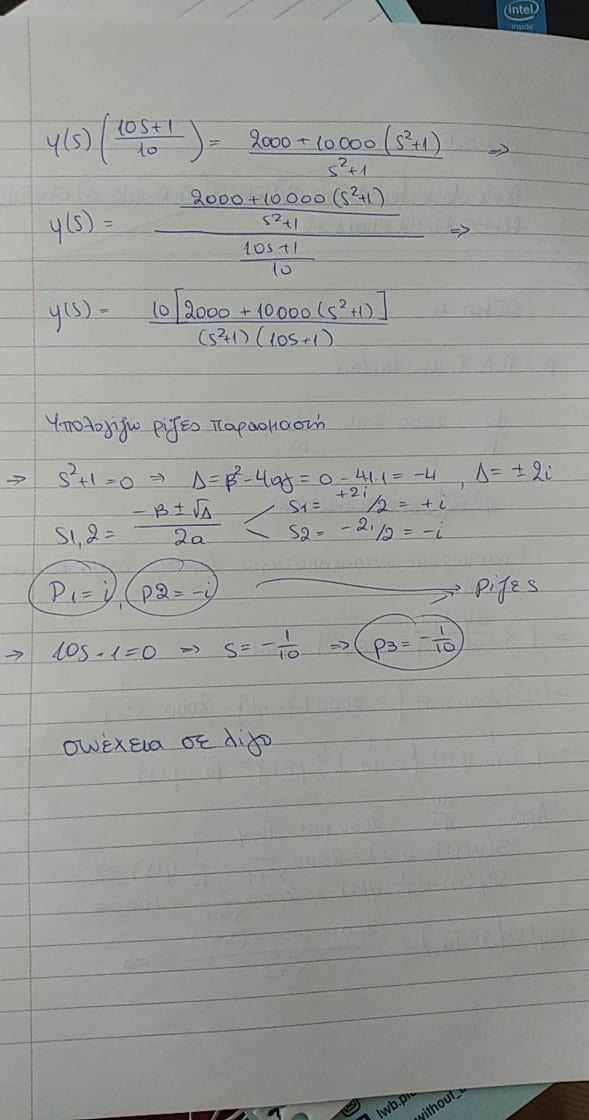 intel
inside
y(s) (10s+1/10) = 2000+10000(s²+1)/s²+1 ⇒
y(s) = 2000+10000(s²+1)/s²+1 / 10s+1/10 ⇒
y(s) = 10[2000+10000(s²+1)]/(s²+1)(10s+1)
Υπολογίζω ρίζες παρασμαστή
→ s²+1=0 ⇒ Δ=β²-4αγ=0-4·1·1=-4, Δ=±2i
s1,2= -β±√Δ/2α < s1= +2i/2=+i
s2= -2i/2=-i
P1=i, P2=-i → ρίζες
→ 10s+1=0 ⇒ s=-1/10 ⇒ P3=-1/10
συνέχεια σε λίγο
lwb.pl
without_